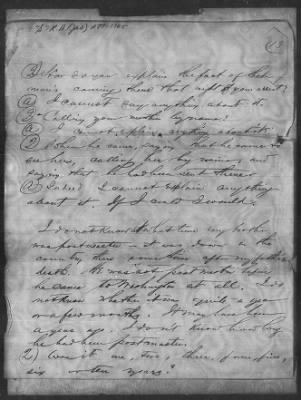 Q How do you explain the fact of that
man's coming there that night to your
A I cannot say anything about it.
Q Calling your mother by name?
A I cannot explain anything about it.
Q When he came, saying that he came to
see her, calling her by name, and
saying that he had been sent there
A Indeed I cannot explain anything
about it. If I could I would.
I do not know what time my brother
was postmaster – it was down in the
country there sometime after my father's
death. He was not postmaster before
he came to Washington at all. I do
not know whether it was quite a year
or a few months. It may have been
a year ago. I don't know how long
he had been postmaster.
Q Was it one, two, three, four, five,
six or ten years?